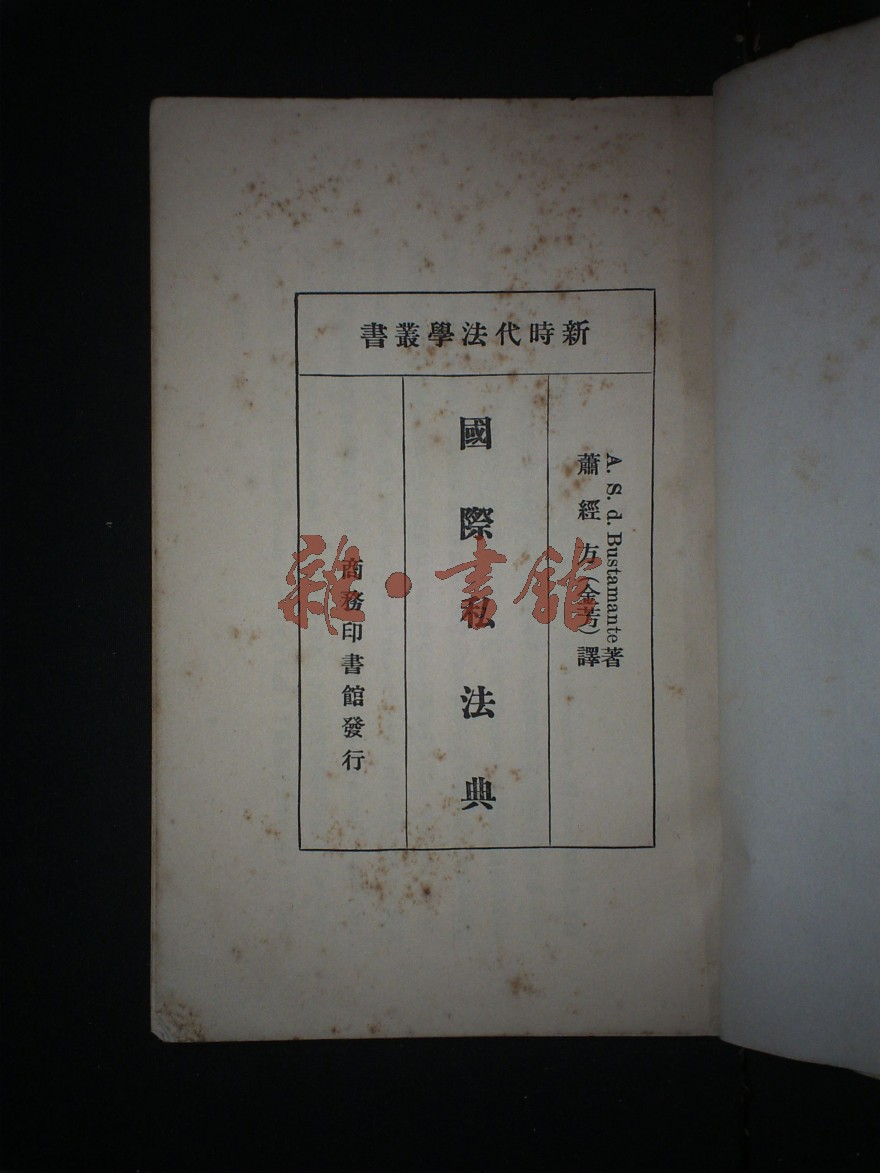 新時代法學叢書
A. S. d. Bustamante著
蕭經方(金芳)譯
國際私法典
商務印書館發行
雜·書館